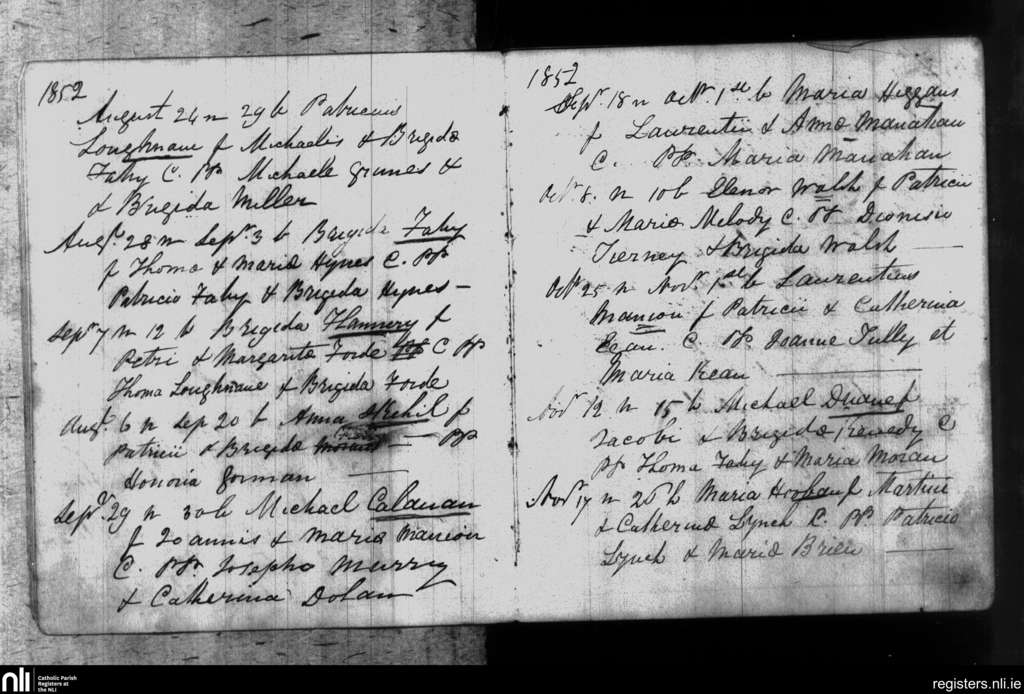 1852
August 24 n 29 b Patricius
Loughnane f Michaelis & Brigida
Fahy C. PP. Michaele Grimes &
& Brigida Miller
Augt. 28 n Sepr. 3 b Brigida Fahy
f Thoma & Maria Hynes C. PP
Patricio Fahy & Brigida Hynes –
Sepr 7 n 12 b Brigida Flannery f
Petri & Margarita Forde C PP
Thoma Loughnane & Brigida Forde
Augt. 6 n Sep 20 b Anna Skehil f
Patricii & Brigida PP
Honoria Gorman
Sepr. 29 n 30 b Michael Calanan
f Joannis & Maria Manion
C. PP. Josepho Murry
& Catherina Dolan
1852
Sepr. 18 n Octr. 1st b Maria Higgans
f Laurentii & Anna Manahan
C. PP. Maria Manahan
Octr. 8. n 10 b Elenor Walsh f Patricii
& Maria Melody C. PP Dionisio
Tierney & Brigida Walsh
Octr 25 n Novr. 1st b Laurentius
Manion f Patricii & Catherina
Egan. C. PP. Joanne Tully et
Maria Kean
Novr 12 n 15 b Michael Duane f
Jacobi & Brigida Kenedy C
PP Thoma Fahy & Maria Moran
Novr 17 n 26 b Maria Hooban f Martini
& Catherina Lynch C. PP. Patricio
Lynch & Maria Brien
nli
Catholic Parish
Registers at
the NLI
registers.nli.ie